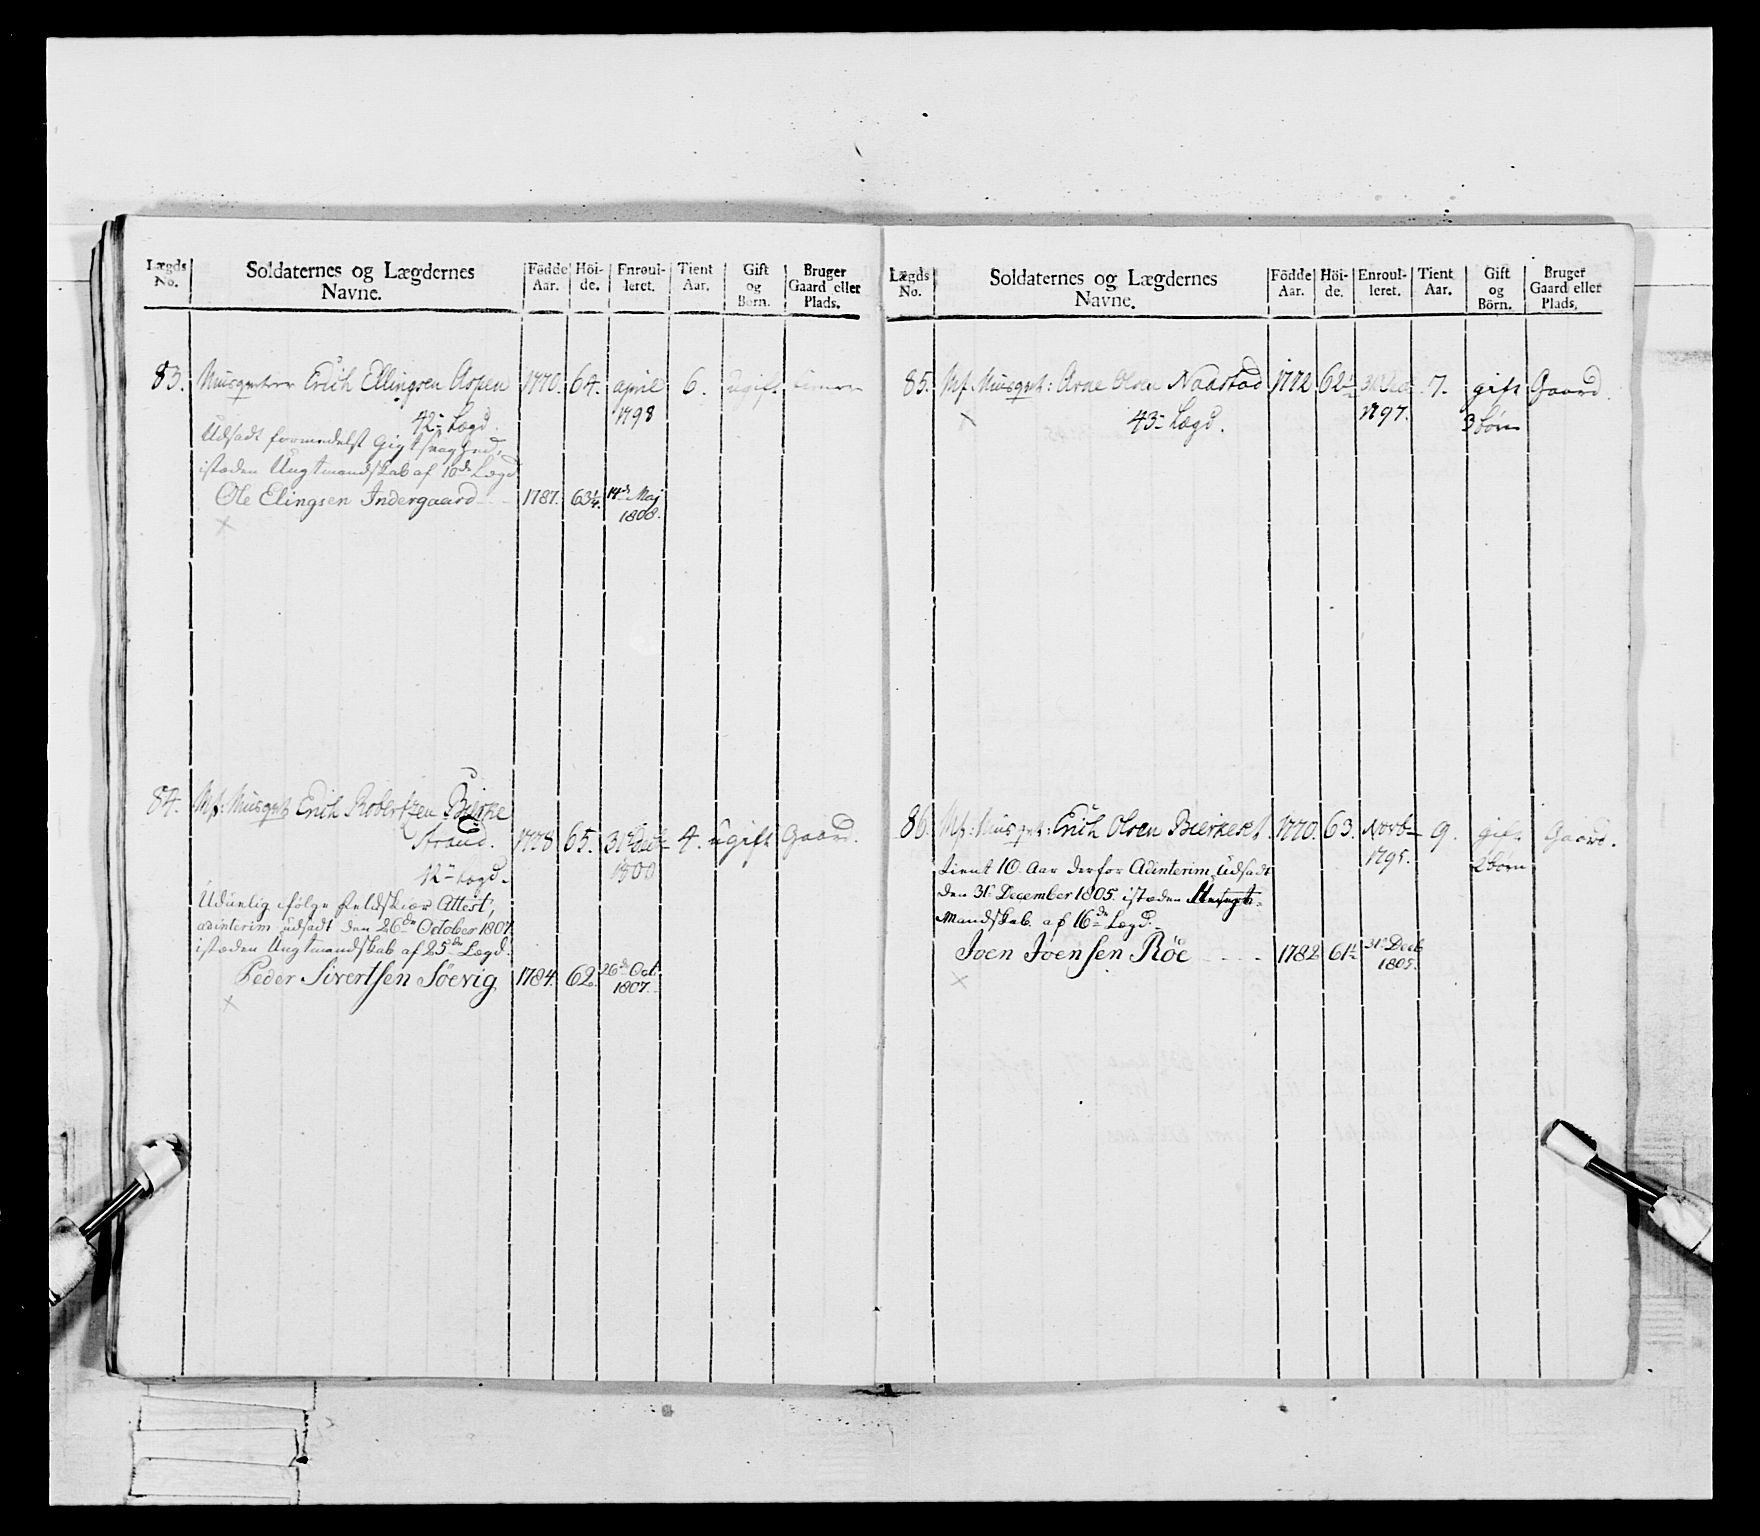 Lægds No.
Soldaternes og Lægdernes Navne.
Födde Aar.
Höi-de.
Enroul-leret.
Tient Aar.
Gift og Börn.
Bruger Gaard eller Plads.
83. Musqueteer Erich Ellingsen Aspen 1770. 64. april 6. ugift
42de Lægd. 1798
Udsadt formedelst Gigt svaghed,
istæden Ungtmandskab af 10de Lægd
Ole Elingsen Indergaard 1787. 63¼. 14de Maj
1808.
84. Nf: Musqvt Erich Robertsen Biørke
Strand. 1778 65. 31te Decbr 4. ugift Gaard.
12te Lægd. 1800
Udünlig ifölge Feldskiær Attest,
adinterim udsadt den 26de October 1807
istæden Ungtmandskab af 25de Lægd.
Peder Sivertsen Söevig 1784. 62. 26de Oct.
1807.
Lægds No.
Soldaternes og Lægdernes Navne.
Födde Aar.
Höi-de.
Enroul-leret.
Tient Aar.
Gift og Börn.
Bruger Gaard eller Plads.
85. Nf. Musqvt: Arne Olsen Naastad 1772 62½ 31te Dec 7. gift Gaard.
43de Lægd. 1797. 3 børn
86. Nf: Musqvt: Erich Olsen Bierkeset 1770. 63. Novbr 9. gift Gaard.
1795. 2 børn
tient 10 Aar derfor Adinterim udsadt
den 31te December 1805. istæden
Mandskab af 16de Lægd.
Joen Joensen Röe 1782 61½ 31te Decb
1805.